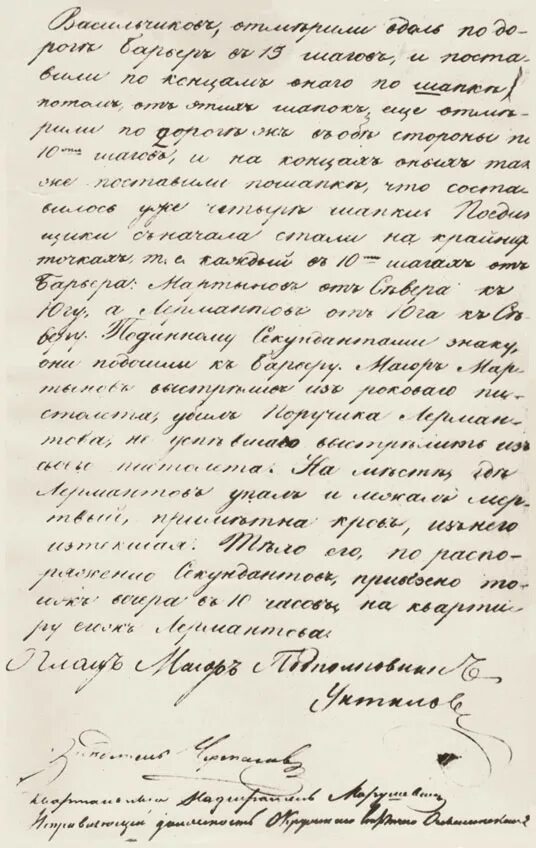 Васильчиковъ, отмѣрили вдоль по до-
рогѣ барьеръ въ 15 шаговъ, и поста-
вили по концамъ онаго по шапкѣ,
потомъ, отъ этихъ шапокъ, еще отмѣ-
рили по дорогѣ жъ въ обѣ стороны по
10ть шаговъ, и на концахъ оныхъ так
же поставили по шапкѣ, что соста-
вилось уже четыре шапки. Поедин-
щики съ начала стали на крайнихъ
точкахъ, т.е. каждый въ 10ти шагахъ отъ
барьера: Мартыновъ отъ Сѣвера къ
Югу, а Лермантовъ отъ Юга къ Сѣ-
веру. По данному Секундантами знаку,
они подошли къ барьеру. Маіоръ Мар-
тыновъ выстрѣливъ изъ роковаго пи-
столета, убилъ Поручика Лерман-
това, не успѣвшаго выстрѣлить изъ
своего пистолета. На мѣстѣ, гдѣ
Лермантовъ упалъ и лежалъ мер-
твый, примѣтна кровь, изъ него
истекшая. Тѣло его, по распо-
ряженію Секундантовъ, привезено то-
гожъ вечера въ 10 часовъ на кварти-
ру егожъ Лермантова.
Плацъ Маіоръ Подполковникъ
Унтиловъ
Черепановъ
Квартальный Надзиратель Марушевскій
Исправляющій должность Окружнаго